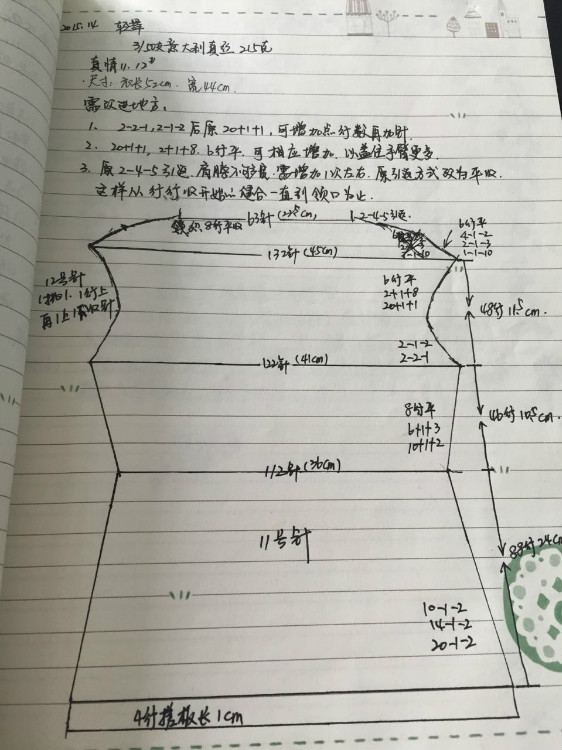 2015.14 轻舞
3/50块意大利真丝 215克
真情11.12#
·尺寸:衣长52cm. 宽44cm.
需改进地方:
1、2-2-1,2-1-2后原20+1+1,可增加点行数再加针.
2. 20+1+1, 2+1+8. 6行平.可相应增加.以盖住手臂更多.
3. 原2-4-5引返.肩膀不够长.需增加1次左右.原引返方式改为平收.
这样从行行收开始 缝合一直到领口为止.
63针(22.5cm) 1-2-4-5引返.
8行平收
6行平
4-1-2
2-1-3
1-1-10
132针(45cm)
12号针
6行平
2+1+8
20+1+1
48行11.5cm.
2-1-2
2-2-1
122针(41cm)
8行平
6+1+3
10+1+2
46行10.5cm.
112针(36cm)
11号针
88行24cm
10-1-2
14-1-2
20-1-2
4针搓板长1cm